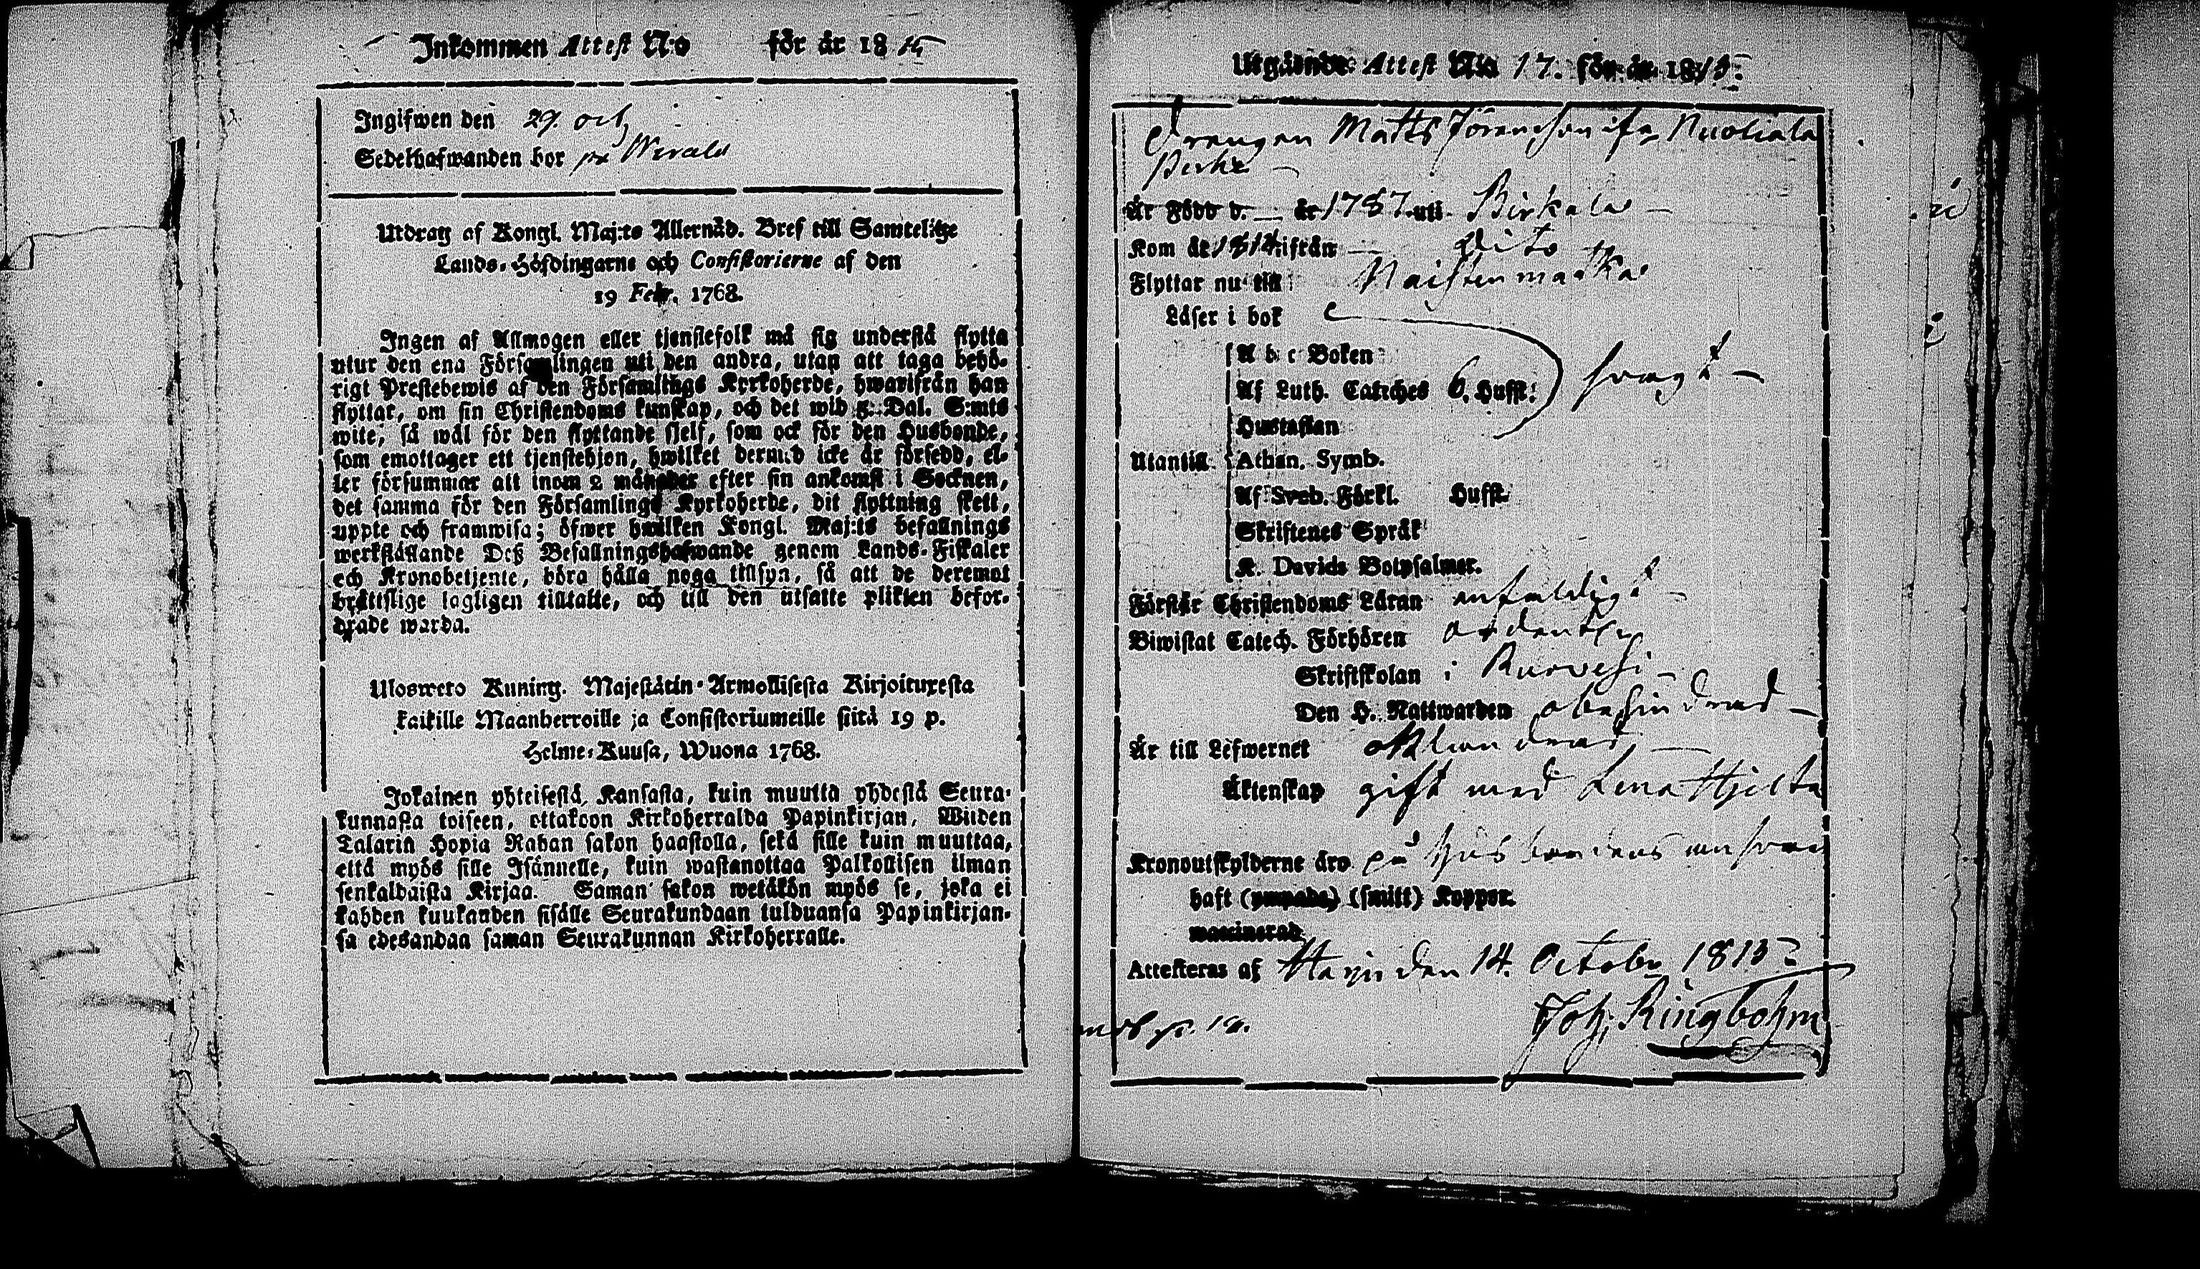 Inkommen Attest N:o för år 1815
Ingifwen den 29. octb
Sedelhafwanden bor på Werald
Utdrag af Kongl. Maj:ts Allernåd. Bref till Samtelige
Lands-Höfdingarne och Consistorierne af den
19 Febr. 1768.
Ingen af Allmogen eller tjenstefolk må sig understå flytta
utur den ena Församlingen uti den andra, utan att taga behö-
rigt Prestebewis af den Församlings Kyrkoherde, hwarifrån han
flyttar, om sin Christendoms kunskap, och det wid 5. Dal. S:mts
wite, så wäl för den flyttande sjelf, som ock för den Husbonde,
som emottager ett tjenstehjon, hwilket dermed icke är försedd, el-
ler försummar att inom 2 månader efter sin ankomst i Socknen,
det samma för den Församlings Kyrkoherde, dit flyttning skett,
uppte och framwisa; öfwer hwilken Kongl. Maj:ts befallnings
werkställande Deß Befallningshafwande genom Lands-Fiskaler
och Kronobetjente, böra hålla noga tillsyn, så att de deremot
bråttslige lagligen tilltalte, och till den utsatte plikten befor-
drade warda.
Ulosweto Kuning. Majestätin Armollisesta Kirjoituxesta
kaikille Maanherroille ja Consistoriumeille siitä 19 p.
Helme-Kuusa, Wuona 1768.
Jokainen yhteisestä Kansasta, kuin muutta yhdestä Seura-
kunnasta toiseen, ottakoon Kirkoherralda Papinkirjan, Wiiden
Talarin Hopia Rahan sakon haastolla, sekä sille kuin muuttaa,
että myös sille Isännelle, kuin wastanottaa Palkollisen ilman
senkaldaista Kirjaa. Saman sakon wetäkön myös se, joka ei
kahden kuukauden sisälle Seurakundaan tulduansa Papinkirjan-
sa edesandaa saman Seurakunnan Kirkoherralle.
Utgående Attest N:o 17. för år 1815.
Drengen Matts Jöranson ifr Nuoliala
Birk
Är Född d. — år 1787 uti Birkala —
Kom år 1814 ifrån — Dito
Flyttar nu till Naistenmatka
Läser i bok
A b c Boken
Af Luth. Cateches 6. Hufst: svagt —
Hustaflan
Utantill Athan. Symb.
Af Sveb. Förkl. Hufst.
Skriftenes Språk
K. Davids Botpsalmer.
Förstår Christendoms Läran enfaldigt —
Biwistat Catech. Förhören ordentl
Skriftskolan i Ruovesi —
Den H. Nattwarden obehindrad —
Är till Lefwernet oklandrad —
Äktenskap gift med Lena Hjelt
Kronoutskylderne äro på Husbondens answar
haft (ympade) (smitt) Koppor.
waccinerad
Attesteras af Harju den 14. Octobr 1815
Joh. Ringbohm